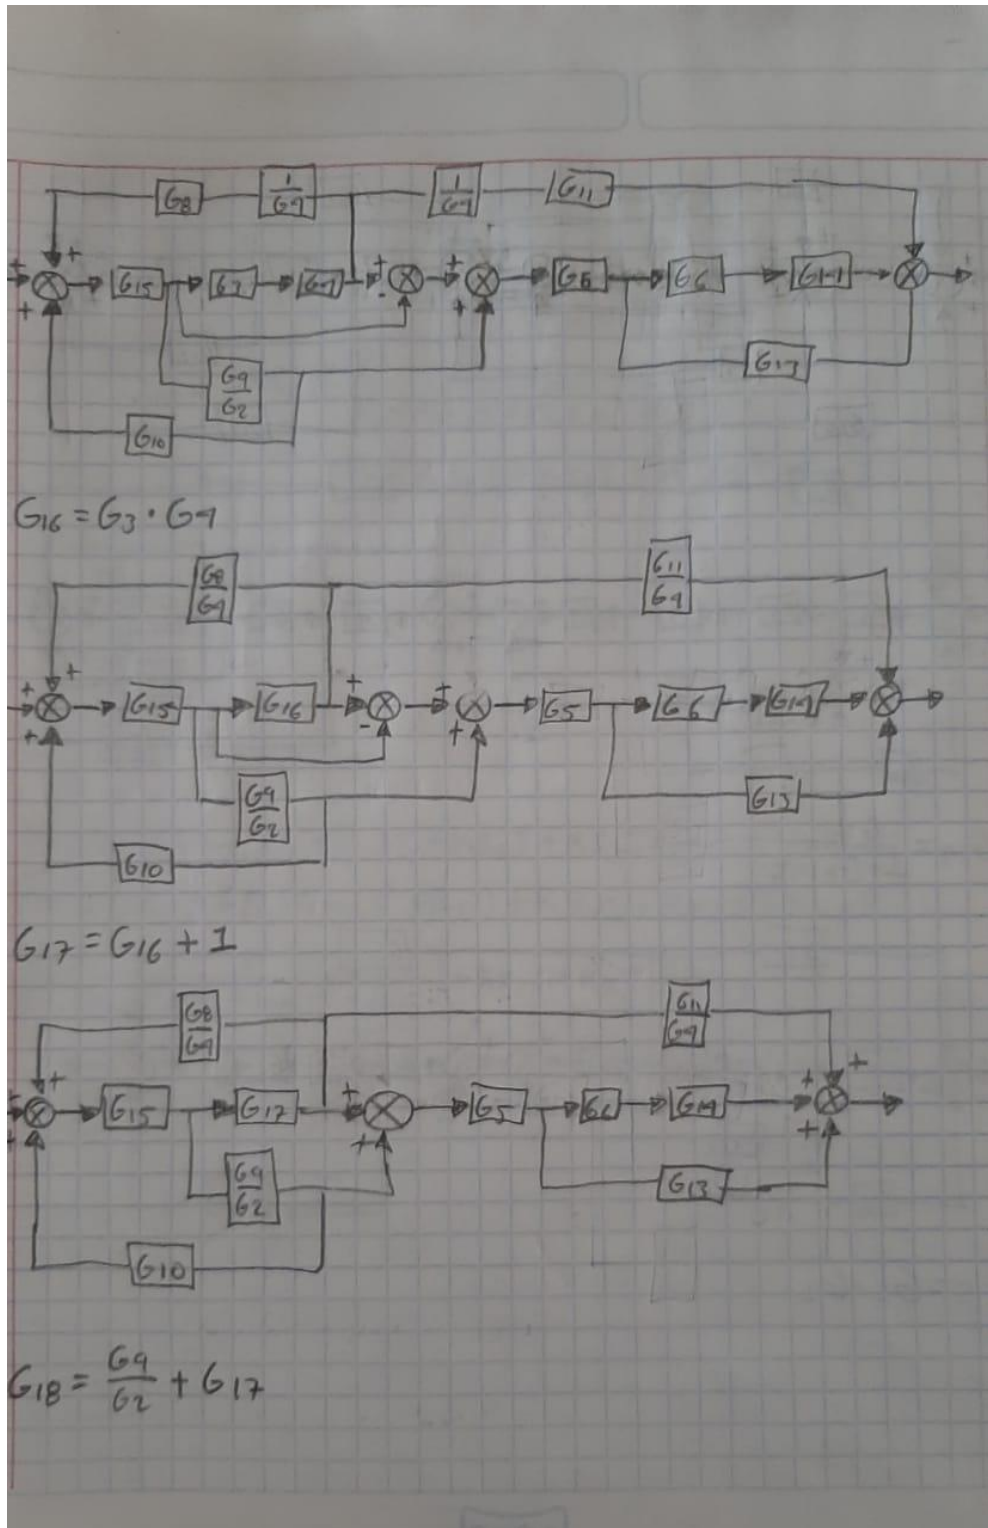 G8 1/G4 1/G4 G11
+ + + +
+ G15 G3 G4 - + G5 G6 G14
G9/G2 G13
G10
G16 = G3 · G4
G8/G4 G11/G4
+ + + +
+ G15 G16 - + G5 G6 G14
G9/G2 G13
G10
G17 = G16 + 1
G8/G4 G11/G4
+ + + +
G15 G17 + G5 G6 G14 +
G9/G2 G13
G10
G18 = G9/G2 + G17